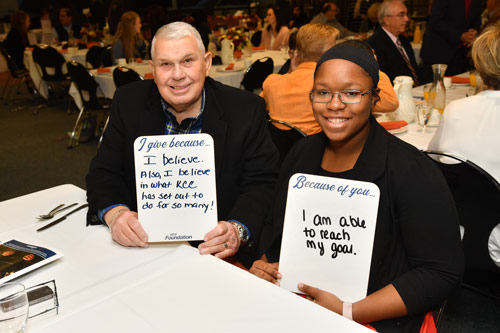 I give because...
I believe.
Also, I believe
in what KCC
has set out to
do for so many!
Foundation
Because of you...
I am able
to reach
my goal.